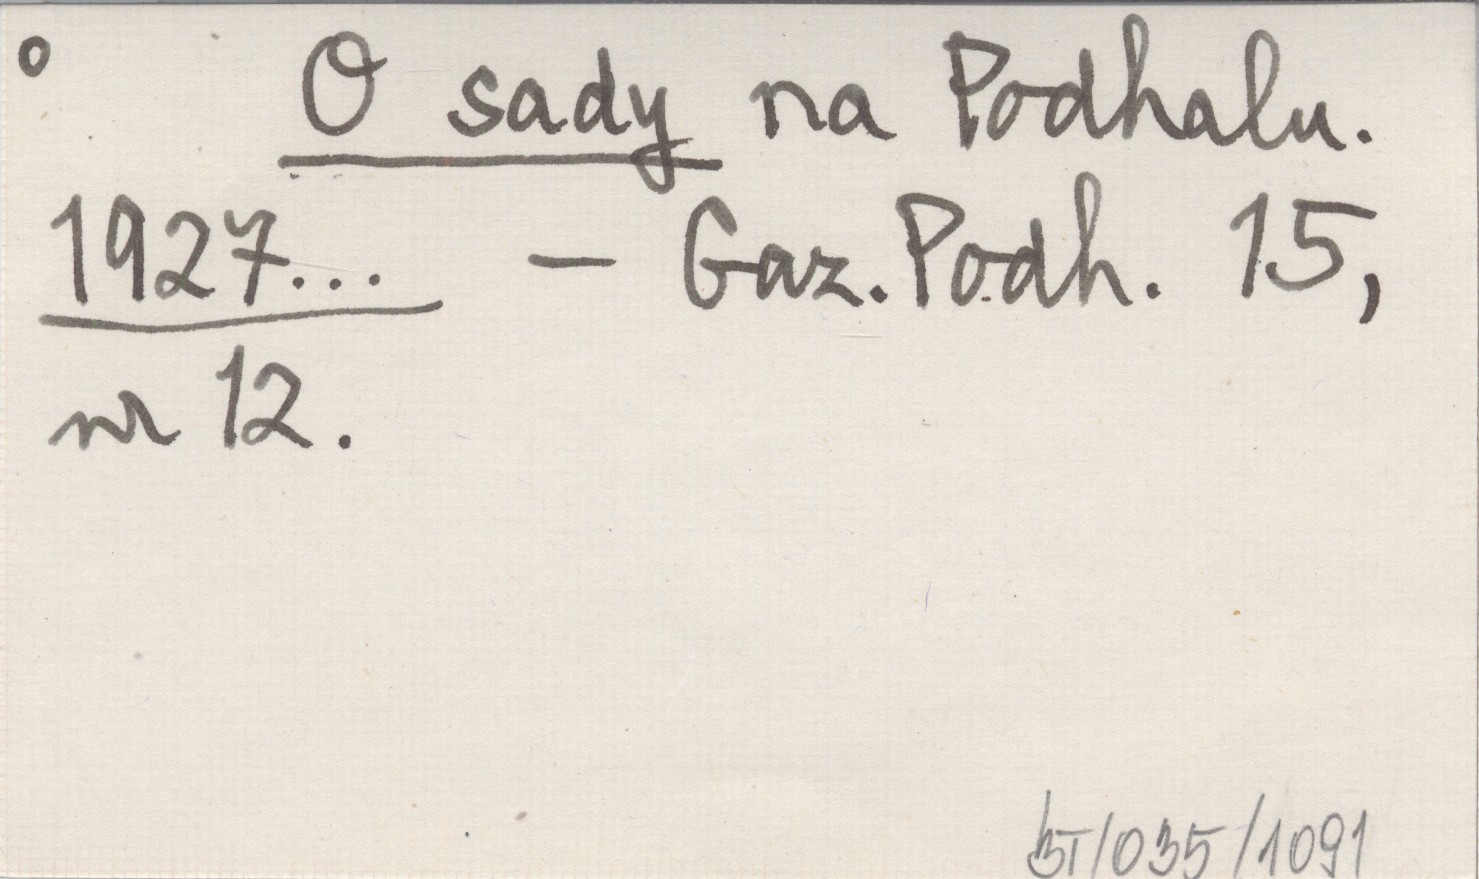 ° O sady na Podhalu.
1927... – Gaz. Podh. 15,
nr 12.
BT/035/1091